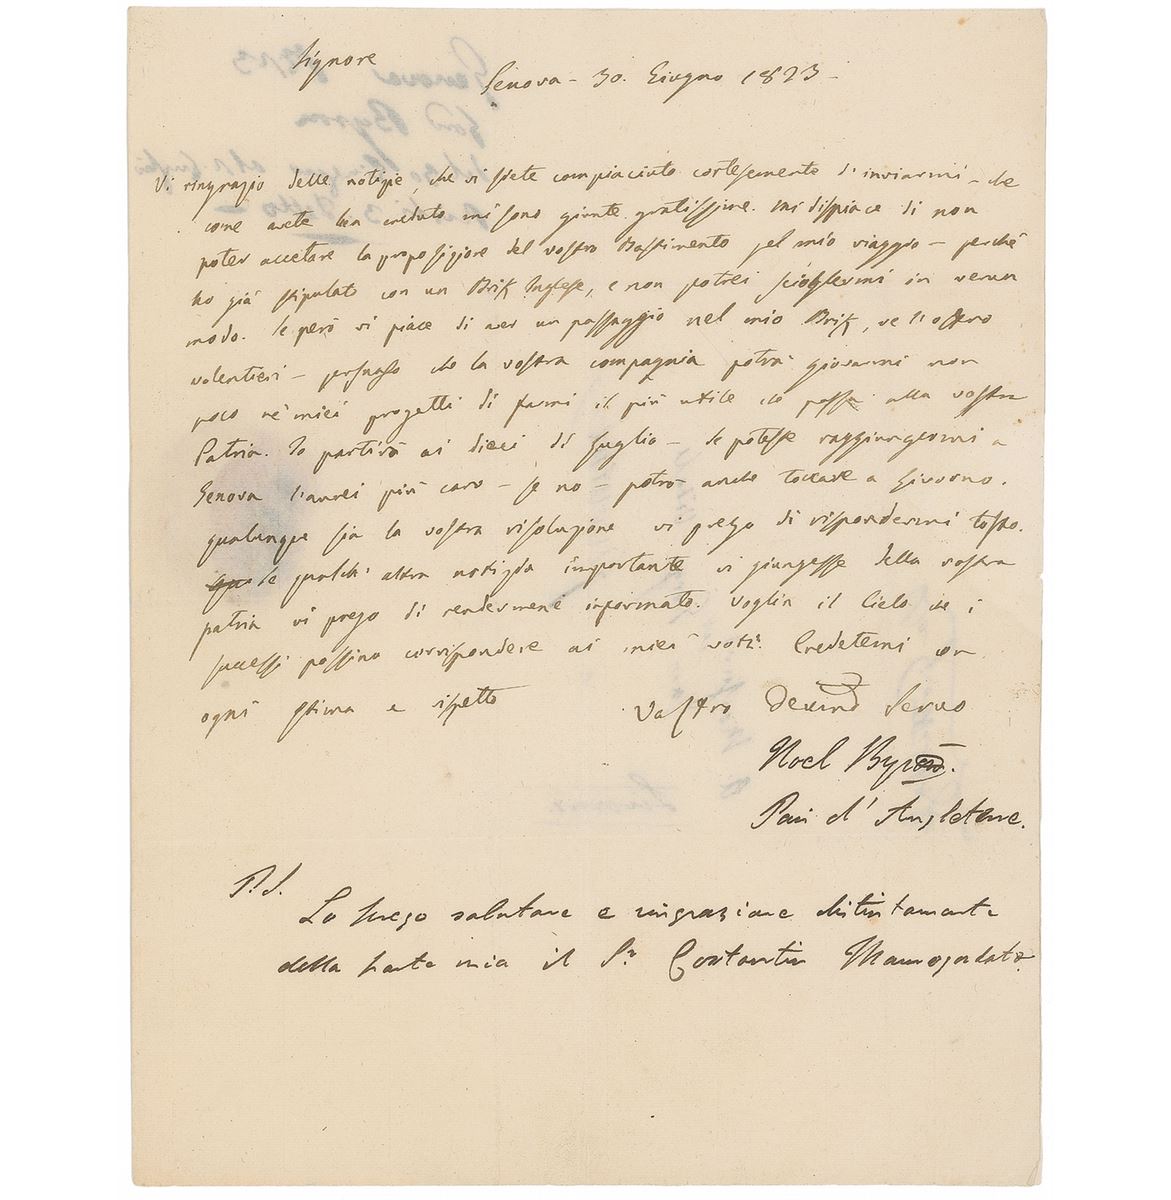 Signore
Genova - 30. Giugno 1823 -
Vi ringrazio delle notizie, che vi siete compiaciuto cortesemente d'inviarmi - che
come avete ben creduto mi sono giunte gratissime. Mi dispiace di non
poter accettare la proposizione del vostro Bastimento pel mio viaggio - perchè
ho già stipulato con un Brik Inglese, e non potrei sciogliermi in verun
modo. Se però vi piace di aver un passaggio nel mio Brik, ve l'offero
volentieri - persuaso che la vostra compagnia potrà giovarmi non
poco ne' miei progetti di farmi il più utile che possa alla vostra
Patria. Io partirò ai dieci di Luglio - se poteste raggiungermi a
Genova l'avrei più caro - se no - potrò anche toccare a Livorno.
qualunque sia la vostra risoluzione vi prego di rispondermi tosto.
Se qualch' altra notizia importante vi giungesse della vostra
patria vi prego di rendermene informato. Voglia il Cielo che i
successi possino corrispondere ai miei voti. Credetemi con
ogni stima e rispetto
Vostro Devmo Servo
Noel Byron.
Pair d'Angleterre.
P.S.
La prego salutare e ringraziare distintamente
della parte mia il Sr Costantin Maurocordato.
Genova
Lord Byron